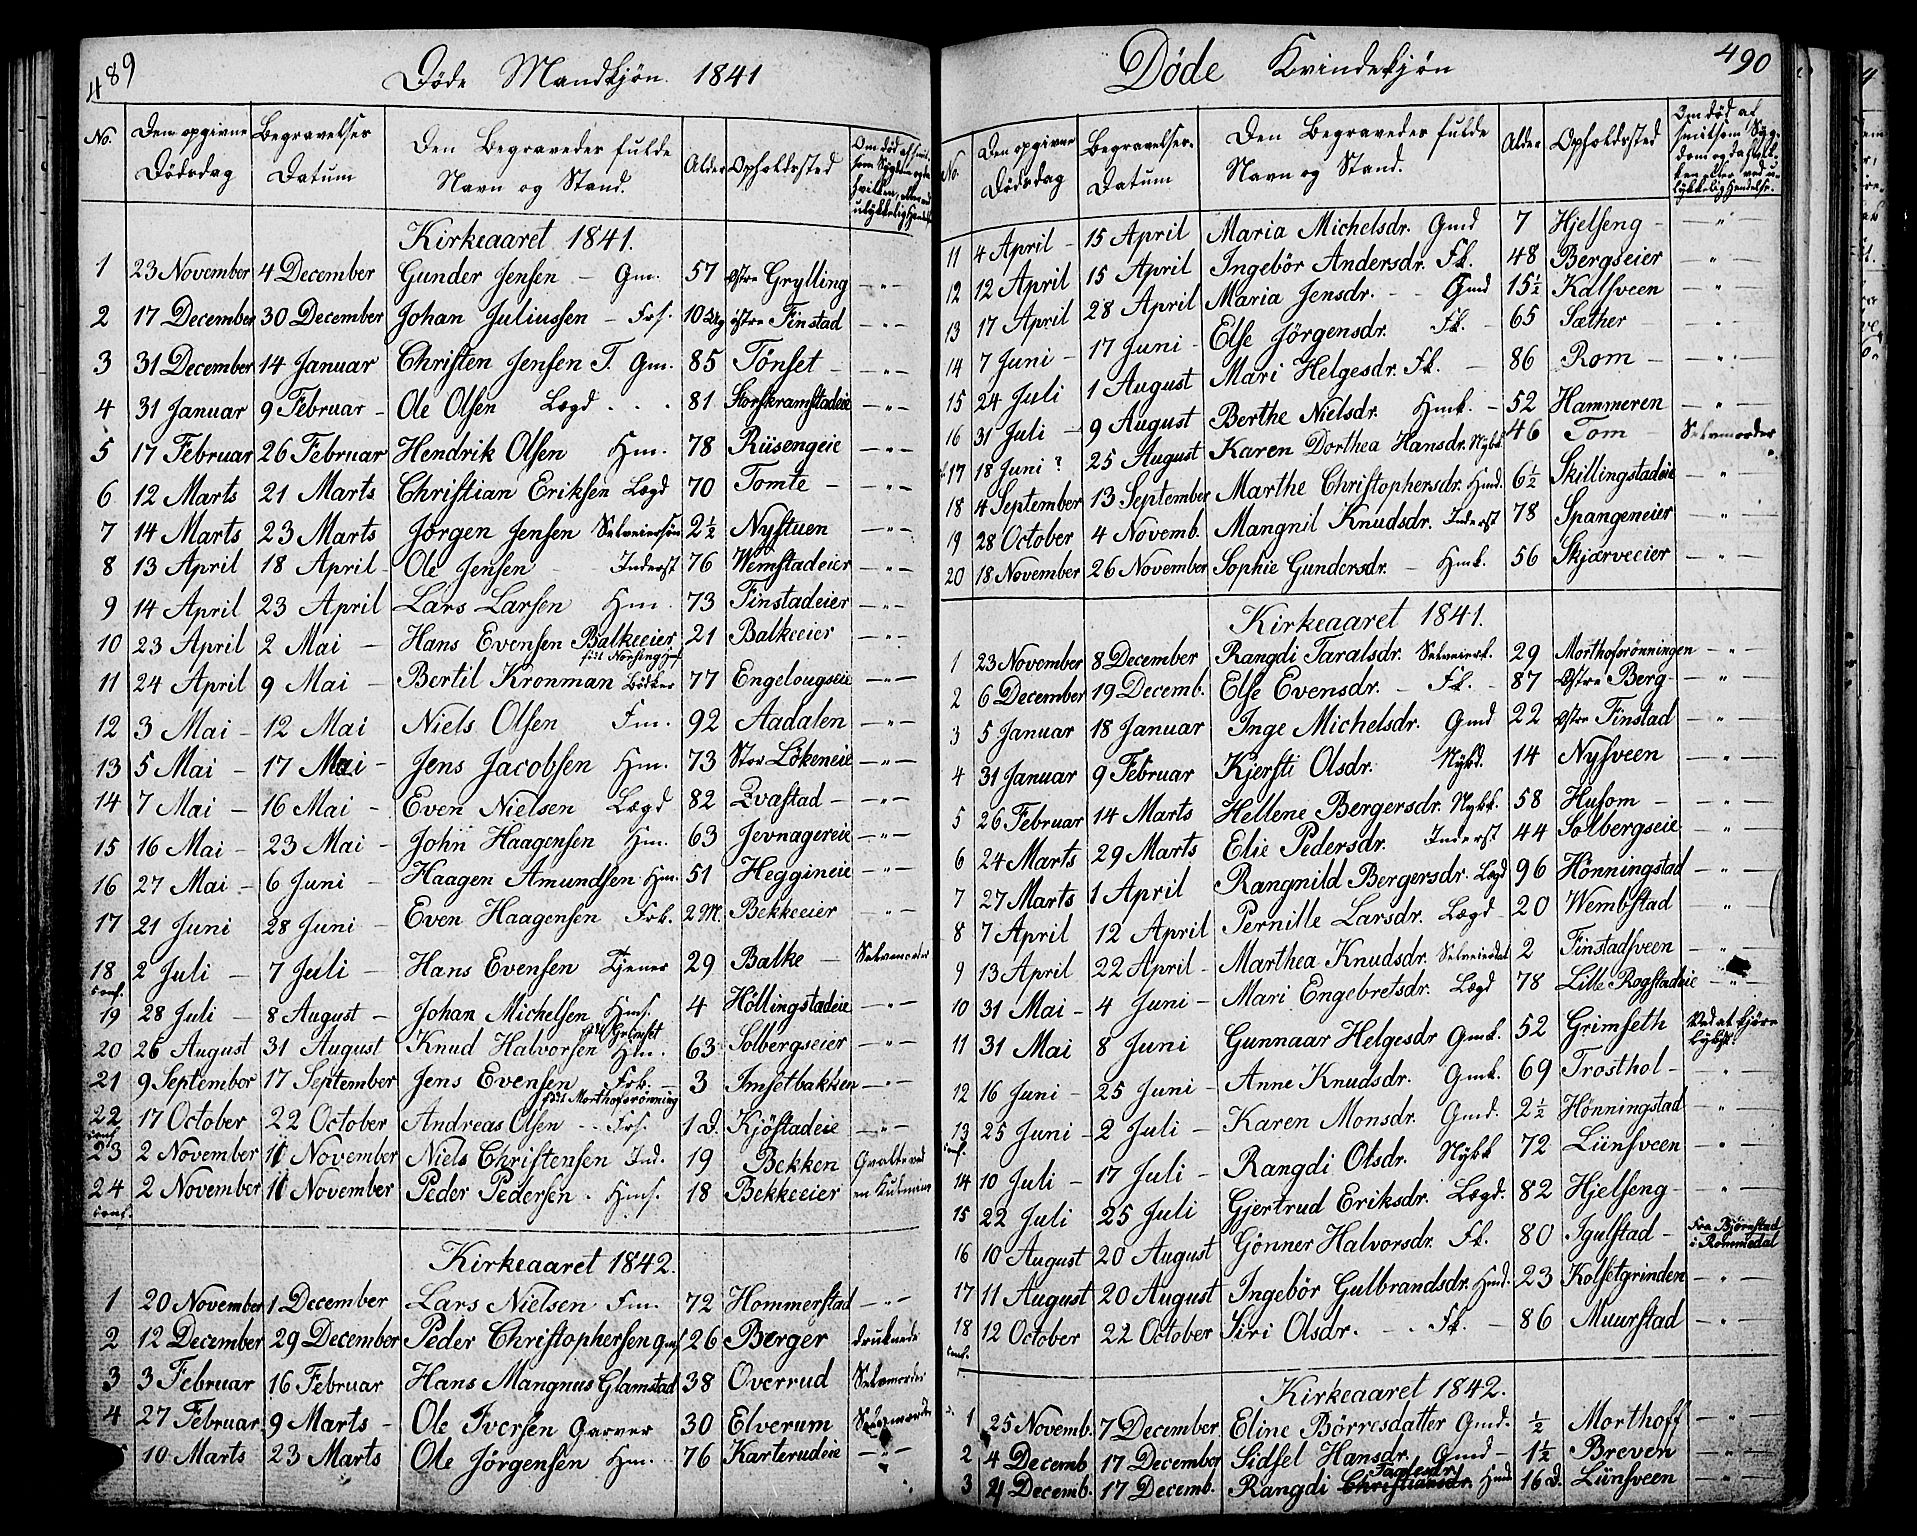 489
Døde Mandkjøn. 1841
No. Den opgivne Dödsdag Begravelses Datum Den Begravedes fulde Navn og Stand. Alder Opholdssted
Kirkeaaret 1841.
1 23 November 4 December Gunder Jensen - Gm. 57 østre Grylling -"-
2 17 December 30 December Johan Juliussen - Frs. 10 Dg østre Finstad -"-
3 31 December 14 Januar Christen Jensen T. Gm. 85 Tönset - -"-
4 31 Januar 9 Februar - Ole Olsen Lægd . . . 81 Storskramstadeie -"-
5 17 Februar 26 Februar Hendrik Olsen Hm. 78 Riisengeie -"-
6 12 Marts 21 Marts Christian Eriksen Lægd 70 Tomte - -"-
7 14 Marts 23 Marts Jørgen Jensen Selveiersøn 2½ Nystuen -"-
8 13 April 18 April - Ole Jensen - Inderst 76 Wemstadeier -"-
9 14 April 23 April Lars Larsen Hm. 73 Finstadeier -"-
10 23 April 2 Mai - Hans Evensen Balkeeier 21 Balkeeier -"-
11 24 April 9 Mai - Bertil Kronman Bödker 77 Engelougseie -"-
12 3 Mai - 12 Mai Niels Olsen Fm. 92 Aadalen -"-
13 5 Mai - 17 Mai - Jens Jacobsen Hm. 73 Stor Lökeneie -"-
14 7 Mai - 16 Mai - Even Nielsen Lægd 82 Evastad - -"-
15 16 Mai - 23 Mai - John Haagensen Hm. 63 Jevnagereie -"-
16 27 Mai - 6 Juni - Haagen Amundsen Hm. 51 Heggineie -"-
17 21 Juni 28 Juni - Even Haagensen Frk. 2 M. Bekkeeier -"-
18 2 Juli - 7 Juli - Hans Evensen Tjener 29 Balke - Selvmorder
conf.
19 28 Juli - 8 August - Johan Michelsen Hms. 4 Höllingstadeie -"-
20 26 August 31 August Knud Halvorsen Hm. 63 Solbergseier -"-
21 9 September 17 September Jens Evensen Frk. - 3 Imsetbakken -"-
født Morthoforönning
22 17 October 22 October Andreas Olsen - - Frs. 1 D. Kjöstadeie -"-
conf.
23 2 November 11 November Niels Christensen Ind. 19 Bekken
24 2 November 11 November Peder Pedersen - Hms. 18 Bekkeeier
conf.
Kirkeaaret 1842.
1 20 November 1 December Lars Nielsen Fm. 72 Hommerstad -"-
2 12 December 29 December Peder Christophersen Gms 26 Berger druknede
3 3 Februar 16 Februar Hans Mangnus Glamstad 38 Overrud Selvmorder
4 27 Februar 9 Marts - Ole Iversen Garver 30 Elverum Selvmorder
10 Marts 23 Marts Ole Jørgensen Hm. 76 Karterudeie -"-
490
Døde Kvindekjøn
No. Den opgivne Dödsdag Begravelses Datum Den Begravedes fulde Navn og Stand. Alder Opholdssted Om død af smitsom Sygdom og da hvilken eller ved ulykkelig Hendelse.
11 4 April - 15 April Maria Michelsdr. Gmd 7 Hjelseng - -"-
12 12 April 15 April Ingebör Andersdr. Fk. 48 Bergseier -"-
13 17 April 28 April Maria Jensdr. - - Gmd 15½ Kalsveen -"-
14 7 Juni - 17 Juni - Else Jörgensdr. Fk. - 65 Sæther - -"-
15 24 Juli 1 August Mari Helgesdr. Fk. - 86 Rom - -"-
16 31 Juli - 9 August Berthe Nielsdr. Hmk. - 52 Hammeren -"-
17 18 Juni ? 25 August Karen Dorthea Hansdr. Nybk 46 Tom - Selvmorder
18 4 September 13 September Marthe Christophersdr. Hmd. 6½ Skillingstadeie -"-
19 28 October 4 Novemb. Mangnil Knudsdr. Inderst 78 Spangeneier -"-
20 18 November 26 November Sophie Gundersdr. - Hmk. 56 Skjærveeier -"-
Kirkeaaret 1841.
1 23 November 8 December Rangdi Taralsdr. Selveierk. 29 Morthoforönningen -"-
2 6 December 19 Decemb. Else Evensdr. - Fk. - 87 Østre Berg -"-
3 5 Januar 18 Januar Inge Michelsdr. Gmd 22 østre Finstad -"-
4 31 Januar 9 Februar Kjersti Olsdr. Nybd. 14 Nysveen -"-
5 26 Februar 14 Marts Hellene Bergersdr. Nybk. 58 Husom - -"-
6 24 Marts 29 Marts Elie Pedersdr. Inderst 44 Solbergseie -"-
7 27 Marts 1 April Rangnild Bergersdr. Lægd 96 Hönningstad -"-
8 7 April 12 April Pernille Larsdr. Lægd - 20 Wembstad -"-
9 13 April 22 April - Marthea Knudsdr. Selveierdat 2 Finstadsveen -"-
10 31 Mai - 4 Juni - Mari Engebretsdr. Lægd 78 Lille Rogstadeie -"-
11 31 Mai 8 Juni Gunnaar Helgesdr Gmk. 52 Grimseth Ved at kjøre
12 16 Juni - 25 Juni - Anne Knudsdr. Gmk. 69 Trosthol - -"-
13 25 Juni - 2 Juli - Karen Monsdr. Gmd. 2½ Hönningstad -"-
conf.
14 10 Juli - 17 Juli - Rangdi Olsdr. Nybk 72 Lünsveen -"-
15 22 Juli 25 Juli Gjertrud Eriksdr. Lægd. 82 Hjelseng - -"-
16 10 August 20 August Gönner Halvorsdr. Fk. 80 Igulstad - Fra Bjørnstad i Rommedal
17 11 August 20 August Ingebör Gulbrandsdr. Hmd. 23 Kolsetgrinden -"-
18 12 October 22 October Siri Olsdr. - - Fk. - 86 Muurstad -"-
conf.
Kirkeaaret 1842.
1 25 Novemb. 7 December Eline Börresdatter Gmd. ½ Morthoff -"-
2 4 Decemb 17 December Sidsel Hansdr. Gmd - 1½ Breven -"-
3 4 Decemb. 17 Decemb. Rangdi Christiansdr. Hmd 16 D. Lünsveen -"-